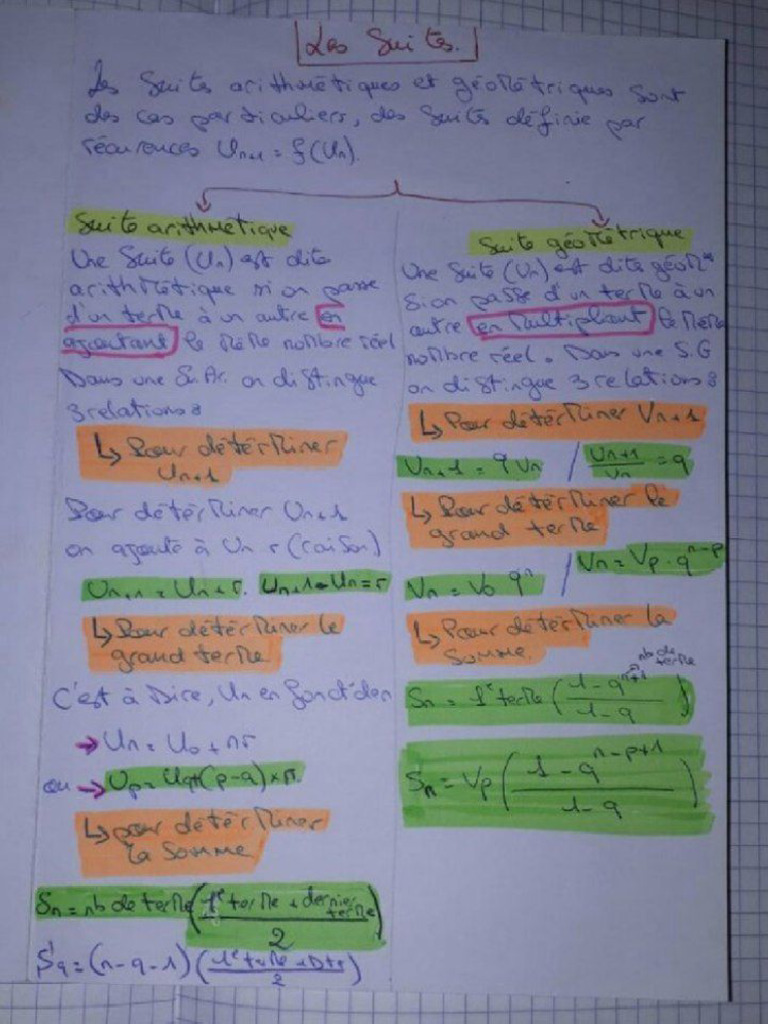 Les Suites.
Les Suites arithmétiques et géométriques sont
des cas particuliers, des suites définie par
récurences Un+1 = f(Un).
Suite arithmétique
Une Suite (Un) est dite
arithmétique si on passe
d'un terme à un autre en
ajoutant le même nombre réel
Dans une S.Ar. on distingue
3 relations :
↳ Pour détérminer
Un+1
Pour détérminer Un+1
on ajoute à Un r (raison)
Un+1 = Un + r. Un+1 - Un = r
↳ Pour détérminer le
grand terme
C'est à Dire, Un en fonct° de n
→ Un = U0 + nr
ou → Up = Uq + (p-q) x r.
↳ pour détérminer
la Somme
Sn = nb de terme (1e terme + dernier terme / 2)
Sq = (n-q-1) (1e terme + Dte / 2)
Suite géométrique
Une Suite (Vn) est dite géom
si on passe d'un terme à un
autre en multipliant le même
nombre réel. Dans une S.G
on distingue 3 relations :
↳ Pour détérminer Vn+1
Vn+1 = q Vn / Vn+1 / Vn = q
↳ Pour détérminer le
grand terme
Vn = V0 q^n / Vn = Vp . q^n-p
↳ Pour détérminer la
Somme.
nb de terme
Sn = 1e terme (1 - q^n+1 / 1 - q)
Sn = Vp (1 - q^n-p+1 / 1 - q)